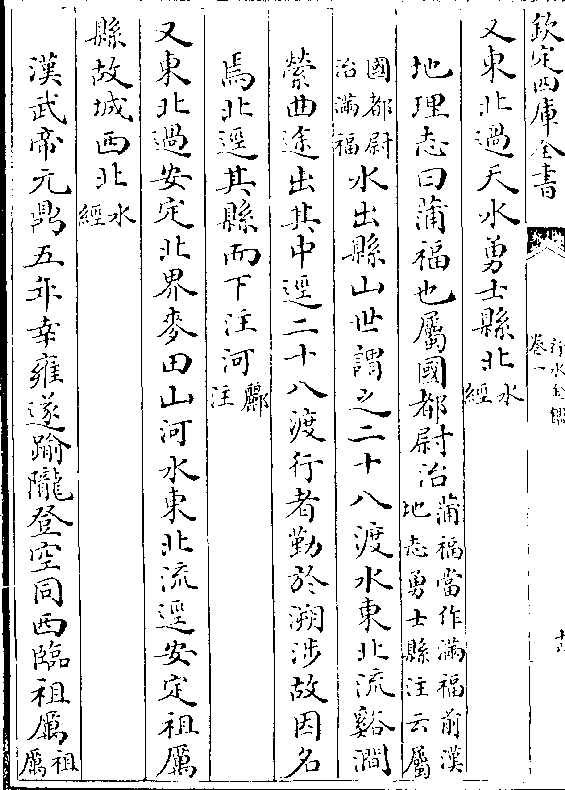 欽定四庫全書
行水金鑑
卷一
又東北過天水勇士縣北水經
地理志曰蒲福也屬國都尉治蒲福當作滿福前漢地志勇士縣注云屬
國都尉治滿福水出縣山世謂之二十八渡水東北流谿澗
縈曲途出其中逕二十八渡行者勤於溯涉故因名
焉北逕其縣而下注河酈注
又東北過安定北界麥田山河水東北流逕安定祖厲
縣故城西北水經
漢武帝元鼎五年幸雍遂踰隴登空同西臨祖厲祖厲